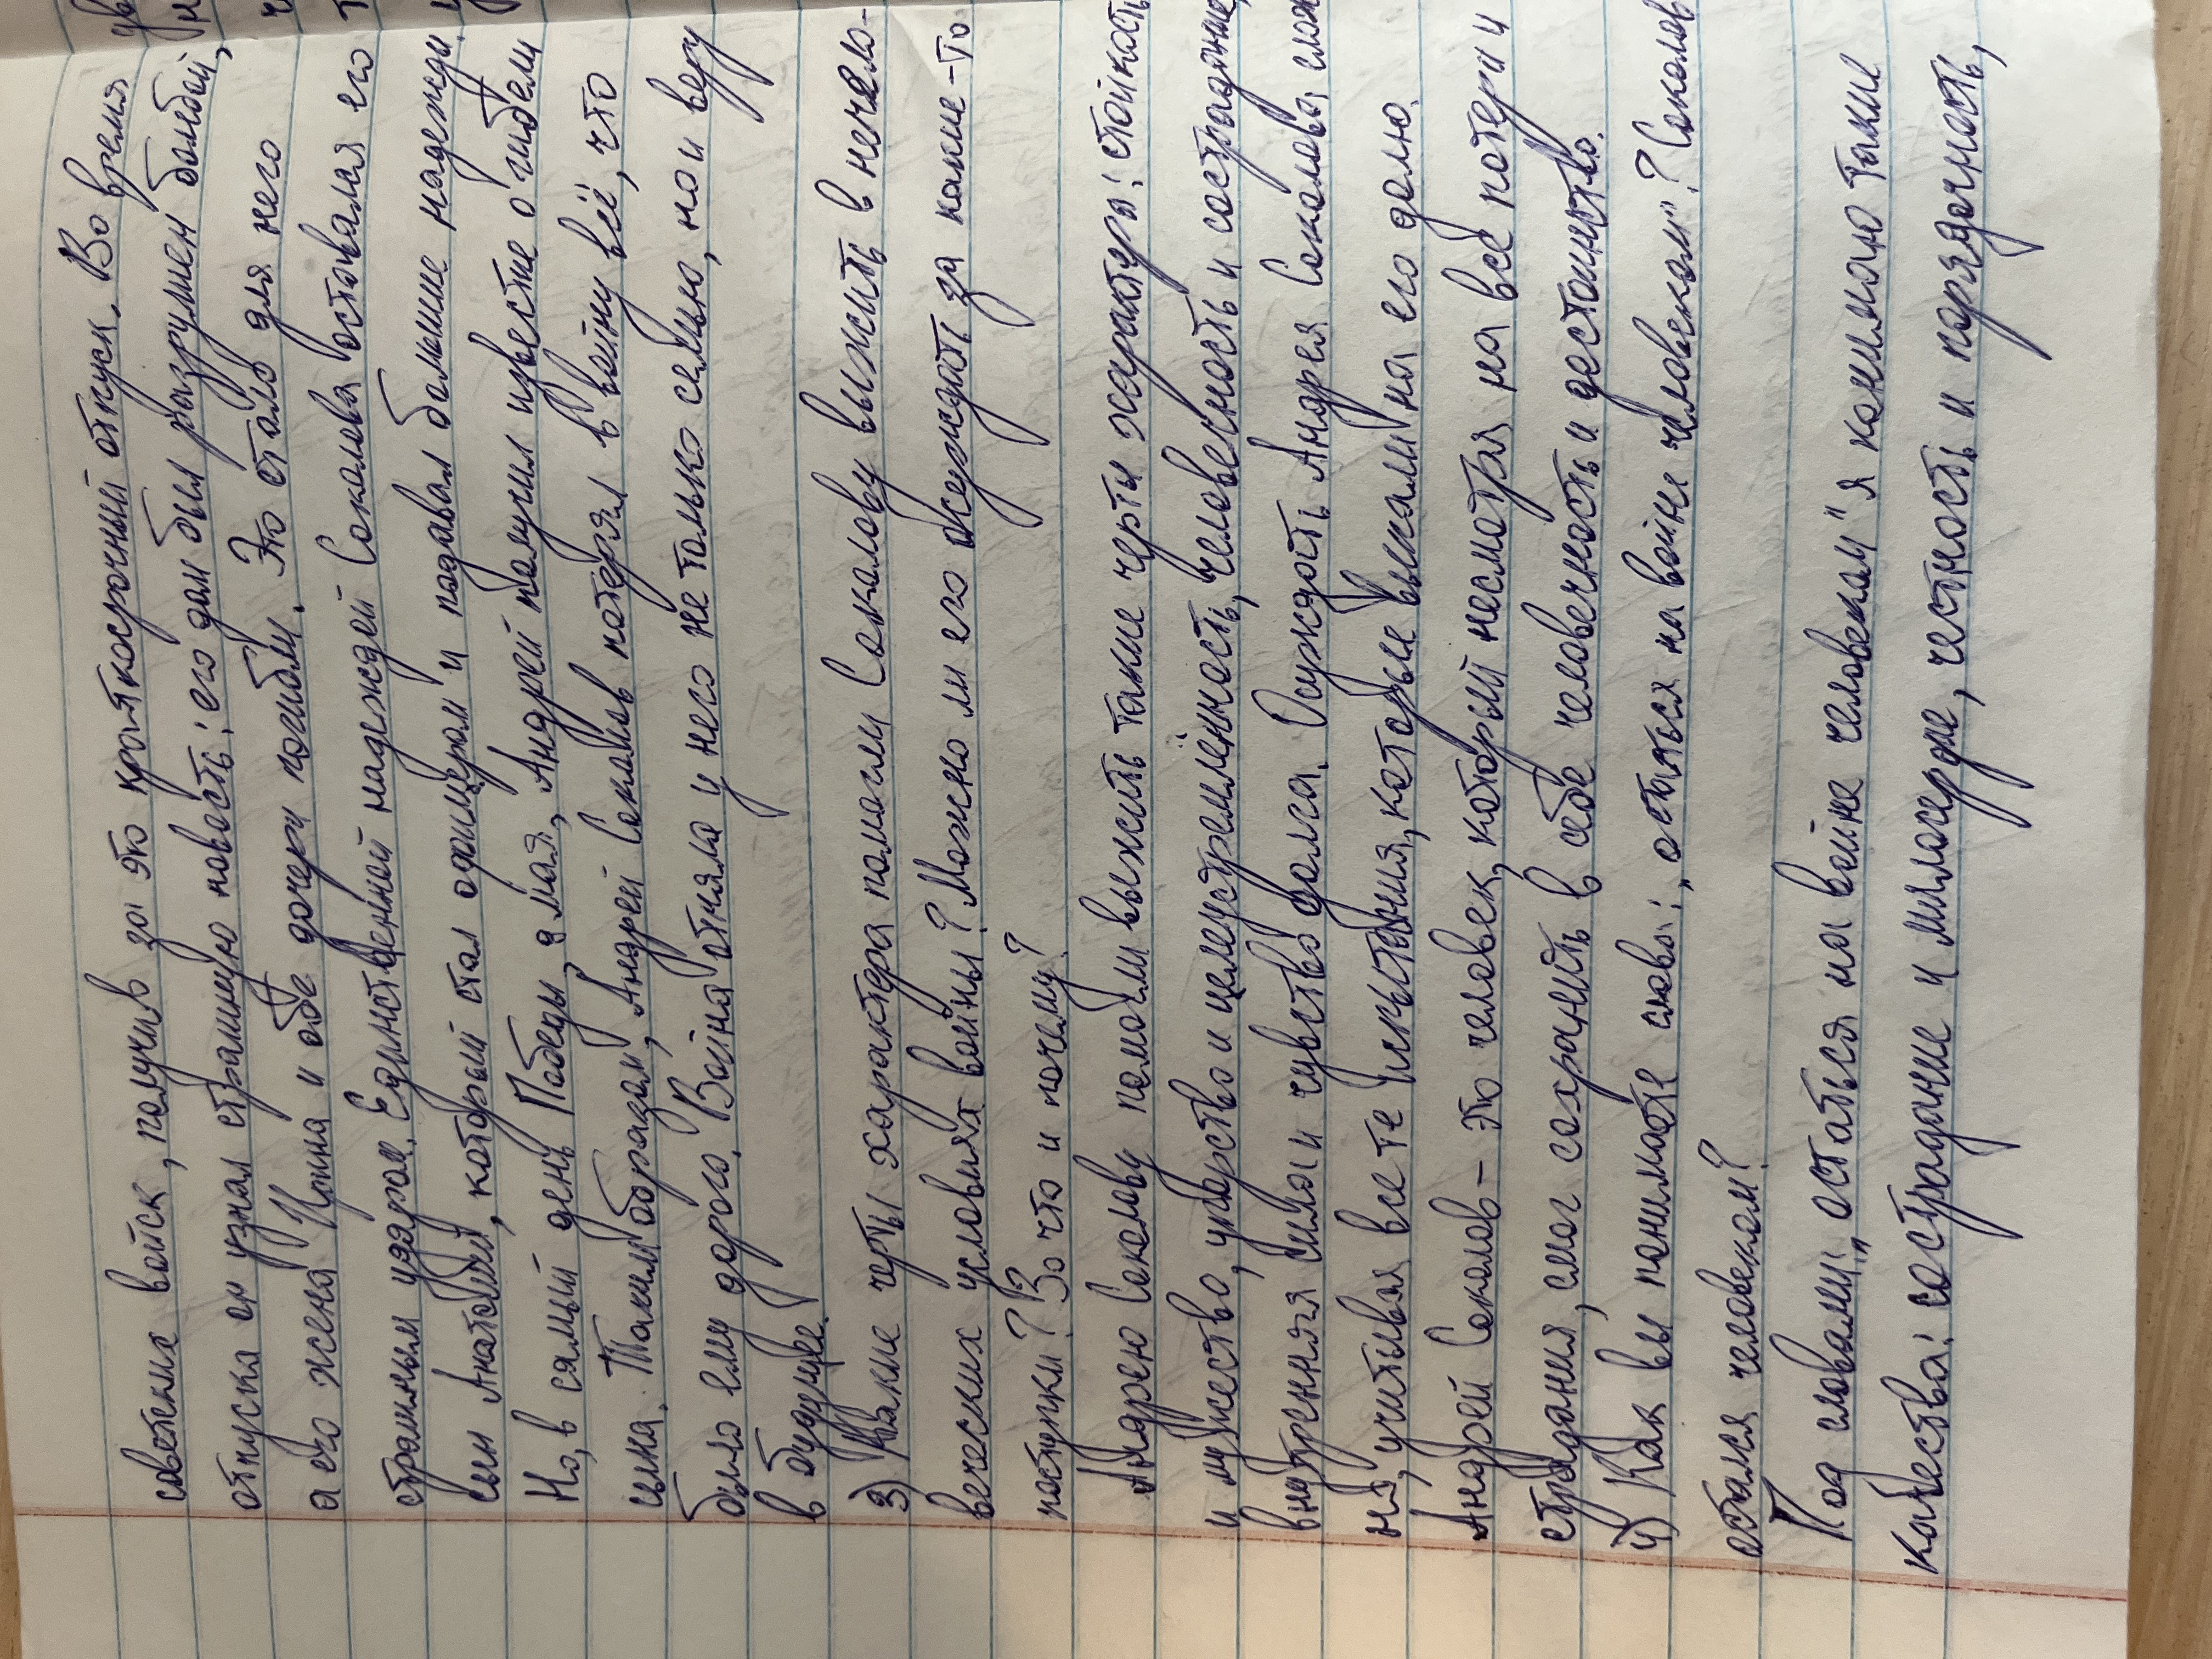 советских войск, получив за это краткосрочный отпуск. Во время
отпуска он узнал страшную новость: его дом был разрушен бомбой,
а его жена Ирина и обе дочери погибли. Это стало для него
страшным ударом. Единственной надеждей Соколова оставался его
сын Анатолий, который стал офицером и подавал большие надежды.
Но, в самый день Победы, 9 мая, Андрей получил известие о гибели
сына. Таким образом, Андрей Соколов потерял в войну всё, что
было ему дорого. Война отняла у него не только семью, но и веру
в будущее.
3) Какие черты характера помогли Соколову выжить в нечело-
веческих условиях войны? Можно ли его осуждать за какие-то
поступки? За что и почему?
Андрею Соколову помогли выжить такие черты характера: стойкость
и мужество, упорство и целеустремлённость, человечность и сострадание,
внутренняя сила и чувство долга. Осуждать Андрея Соколова слож
но, учитывая все те испытания, которые выпали на его долю.
Андрей Соколов – это человек, который несмотря на все потери и
страдания, смог сохранить в себе человечность и достоинство.
4) Как вы понимаете слова: „остаться на войне человеком"? Соколов
остался человеком?
Под словами „остаться на войне человеком" я понимаю такие
качества: сострадание и милосердие, честность и порядочность,